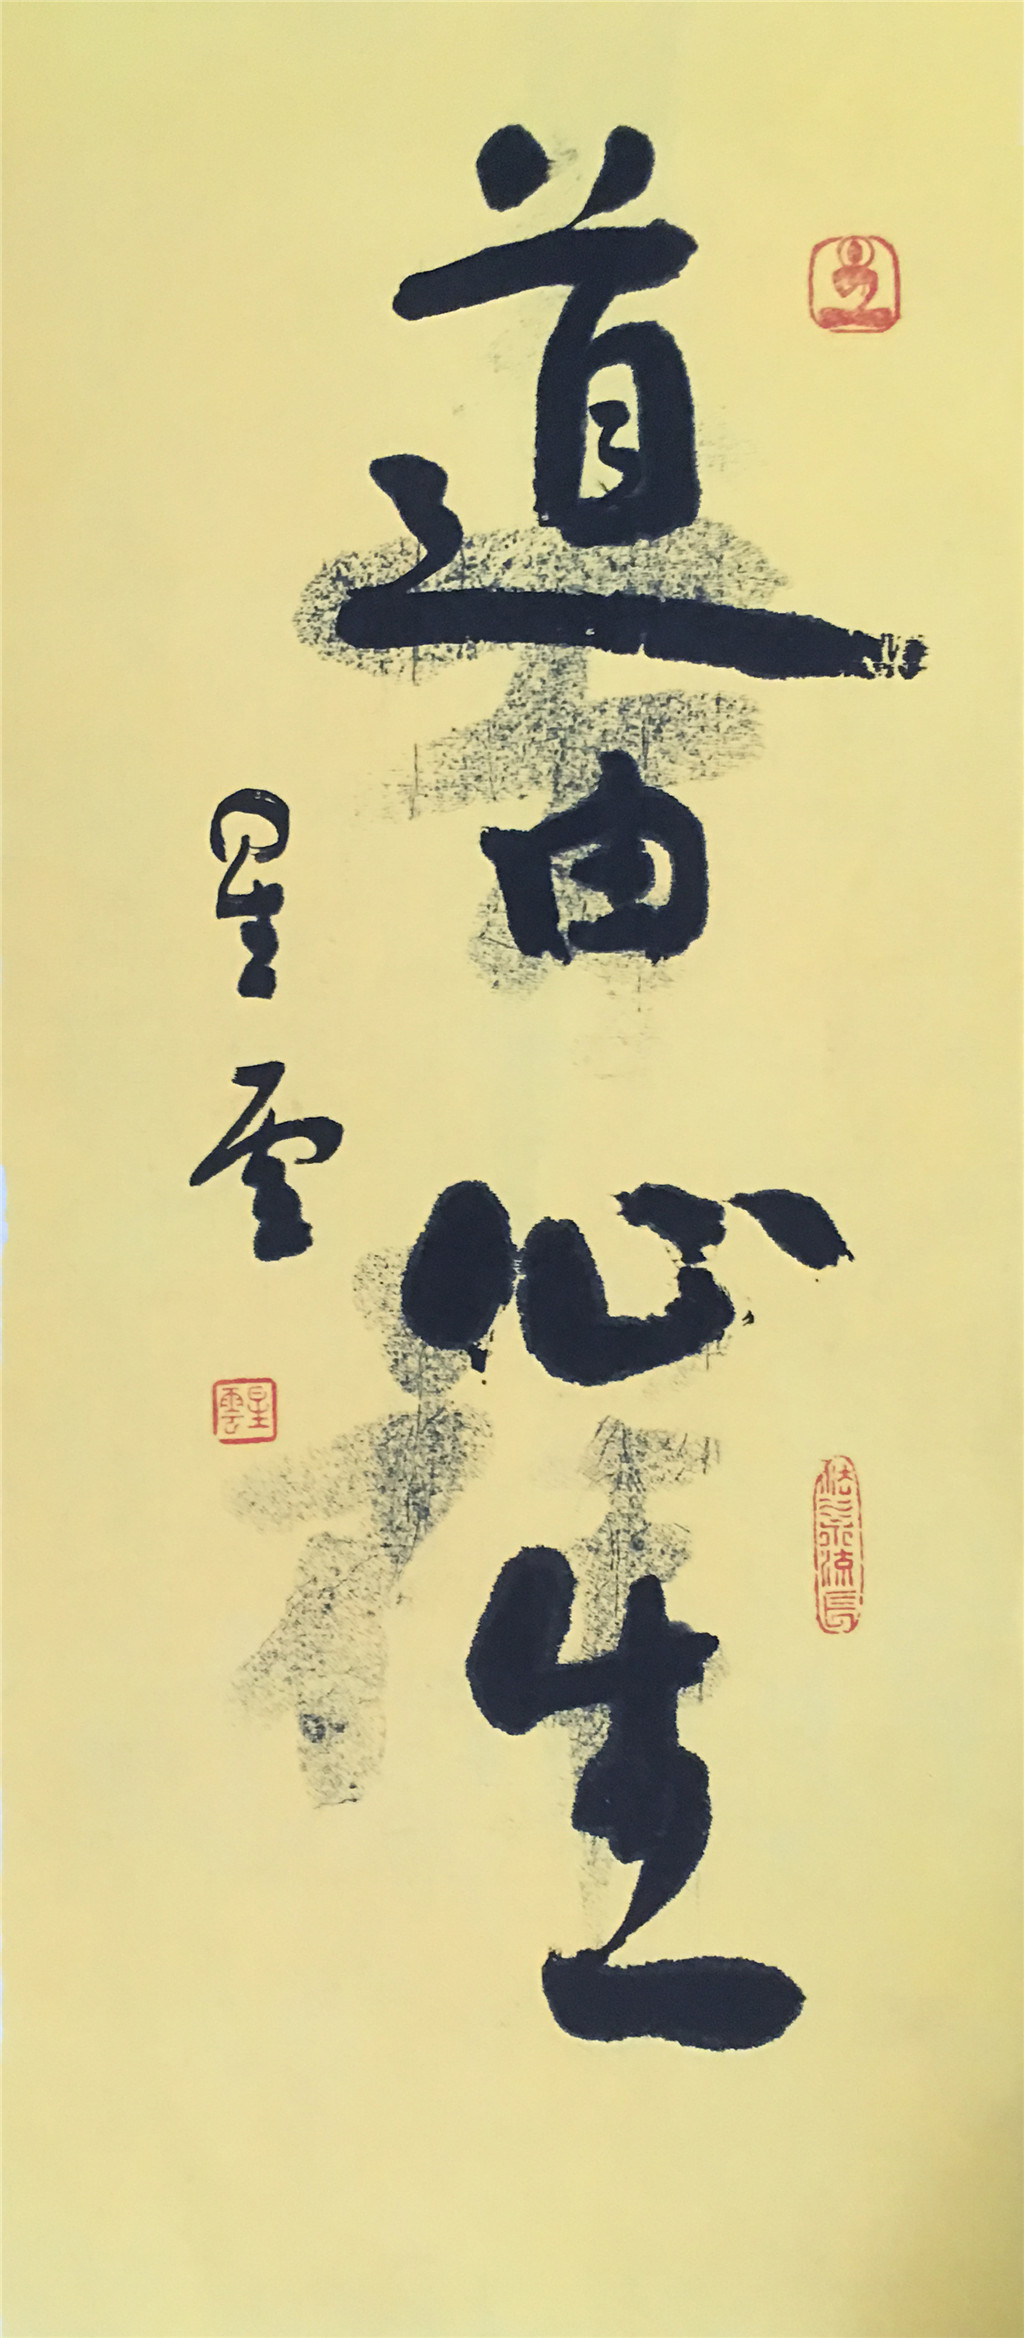 道由心生
星雲
星雲
法水流長